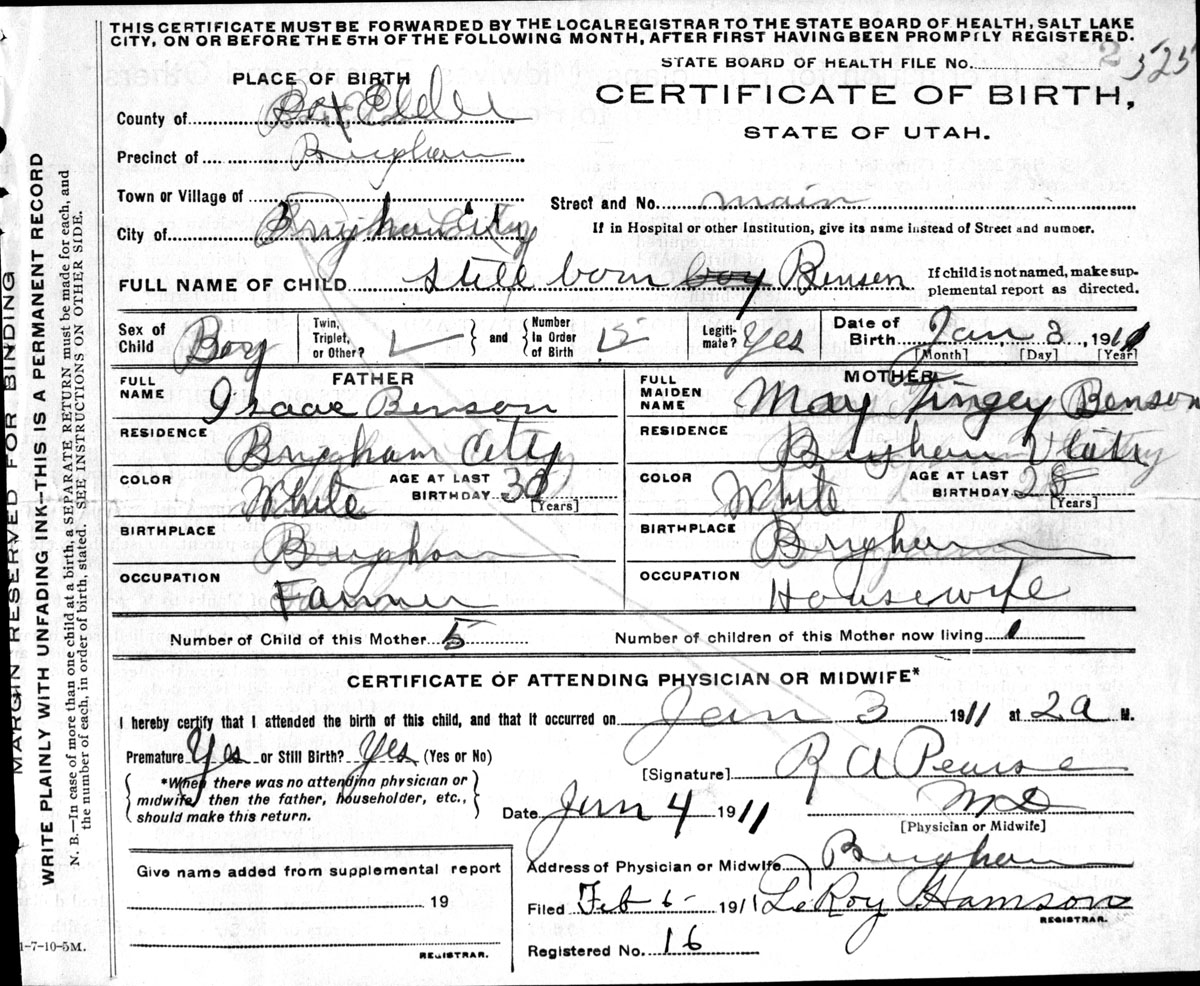 THIS CERTIFICATE MUST BE FORWARDED BY THE LOCAL REGISTRAR TO THE STATE BOARD OF HEALTH, SALT LAKE
CITY, ON OR BEFORE THE 5TH OF THE FOLLOWING MONTH, AFTER FIRST HAVING BEEN PROMPTLY REGISTERED.
STATE BOARD OF HEALTH FILE No. 2 525
PLACE OF BIRTH
CERTIFICATE OF BIRTH,
STATE OF UTAH.
County of Box Elder
Precinct of Brigham
Town or Village of
Street and No. main
City of Brigham City
If in Hospital or other Institution, give its name instead of Street and number.
FULL NAME OF CHILD still born boy Bensen
If child is not named, make sup-
plemental report as directed.
Sex of Child Boy Twin, Triplet, or Other? and Number In Order of Birth Legiti-mate? Yes Date of Birth Jan 3, 1911
[Month] [Day] [Year]
FATHER
MOTHER
FULL NAME Isaac Benson
FULL MAIDEN NAME May Tingey Benson
RESIDENCE Brigham City
RESIDENCE Brigham City
COLOR White AGE AT LAST BIRTHDAY [Years]
COLOR White AGE AT LAST BIRTHDAY 28 [Years]
BIRTHPLACE Brigham
BIRTHPLACE Brigham
OCCUPATION Farmer
OCCUPATION Housewife
Number of Child of this Mother 5 Number of children of this Mother now living 1
CERTIFICATE OF ATTENDING PHYSICIAN OR MIDWIFE*
I hereby certify that I attended the birth of this child, and that it occurred on Jan 3 1911 at 2 a M.
Premature Yes or Still Birth? Yes (Yes or No)
[Signature] R A Pearse
*When there was no attending physician or
midwife then the father, householder, etc.,
should make this return.
Date Jan 4 1911 M D
[Physician or Midwife]
Give name added from supplemental report
19
REGISTRAR.
Address of Physician or Midwife Brigham
Filed Feb 6 - 1911 LeRoy Hamson
REGISTRAR.
Registered No. 16
1-7-10-5M.
MARGIN RESERVED FOR BINDING
WRITE PLAINLY WITH UNFADING INK—THIS IS A PERMANENT RECORD
N. B.—In case of more than one child at a birth, a SEPARATE RETURN must be made for each, and
the number of each, in order of birth, stated. SEE INSTRUCTIONS ON OTHER SIDE.